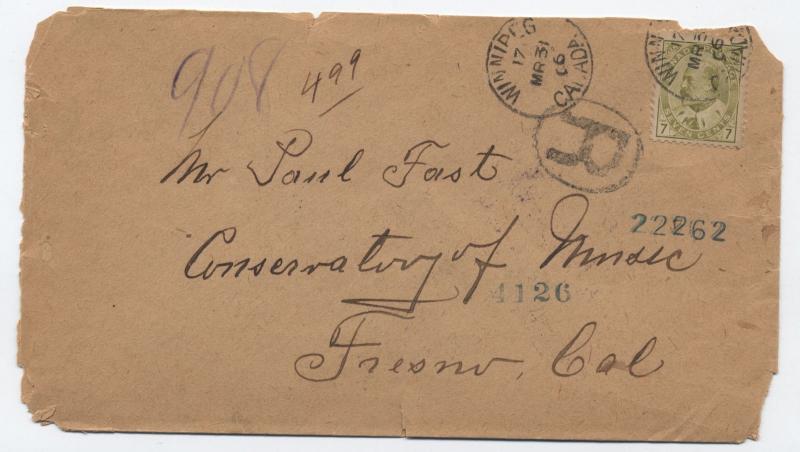 908 499
WINNIPEG
17
MR 31
06
CANADA
WINN
MR
06
SEVEN CENTS
7 7
R
Mr Paul Fast
22262
Conservatory of Music
4126
Fresno, Cal